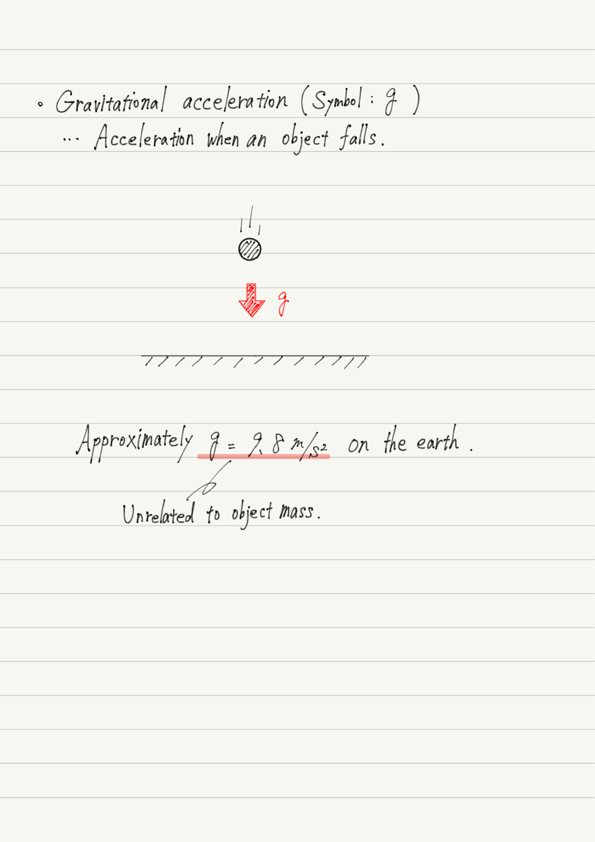 • Gravitational acceleration (Symbol : g )
... Acceleration when an object falls.
g
Approximately g = 9.8 m/s² on the earth.
Unrelated to object mass.